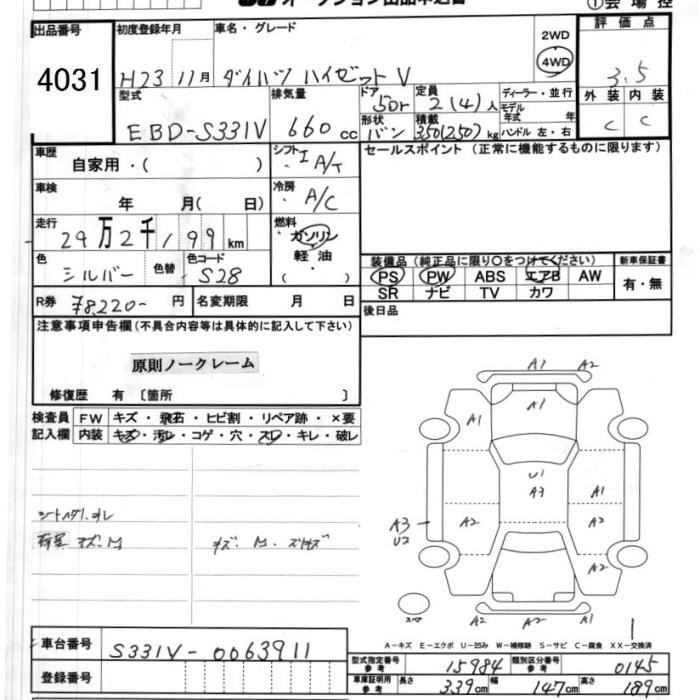 オークション出品申込書 ①会場控
出品番号 初度登録年月 車名・グレード 2WD 評価点
4031 H23 11月 ダイハツ ハイゼット V 4WD 3.5
型式 排気量 ドア 定員 ディーラー・並行 外装 内装
EBD-S331V 660cc 50r 2(4)人 モデル年式 年 C C
形状 積載
バン 350(250)kg ハンドル 左・右
車歴 シフト セールスポイント (正常に機能するものに限ります)
自家用・( ) I A/T
車検 冷房
年 月( 日) A/C
走行 燃料
29万2千199km ガソリン
色 色替 色コード 軽油 装備品(純正品に限り〇をつけてください) 新車保証書
シルバー S28 ・( ) PS PW ABS エアB AW 有・無
SR ナビ TV カワ
R券 ¥8,220- 円 名変期限 月 日 後日品
注意事項申告欄(不具合内容等は具体的に記入して下さい)
原則ノークレーム
修復歴 有 〔箇所 〕
検査員 FW キズ・飛石・ヒビ割・リペア跡・×要
記入欄 内装 キズ・汚レ・コゲ・穴・スレ・キレ・破レ
A1 A2
A1
A1
U1
A3 A1
A3 A2 A2
U2
A2
A2 A2 A1
A-キズ E-エクボ U-凹み W-補修跡 S-サビ C-腐食 XX-交換済
車台番号 S331V-0063911
型式指定番号 参考 15984 類別区分番号 参考 0145
登録番号
車庫証明用 参考 長さ 339cm 幅 147cm 高さ 189cm